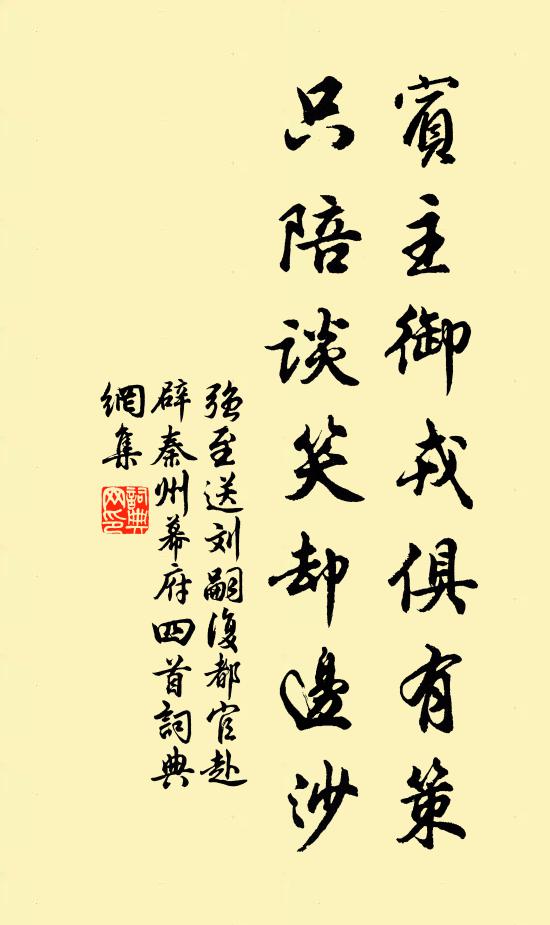 賓主御戎俱有策
只陪談笑却邊沙
強至送刘嗣復都官赴
辟秦州幕府四首詞典
網集
詞典网印